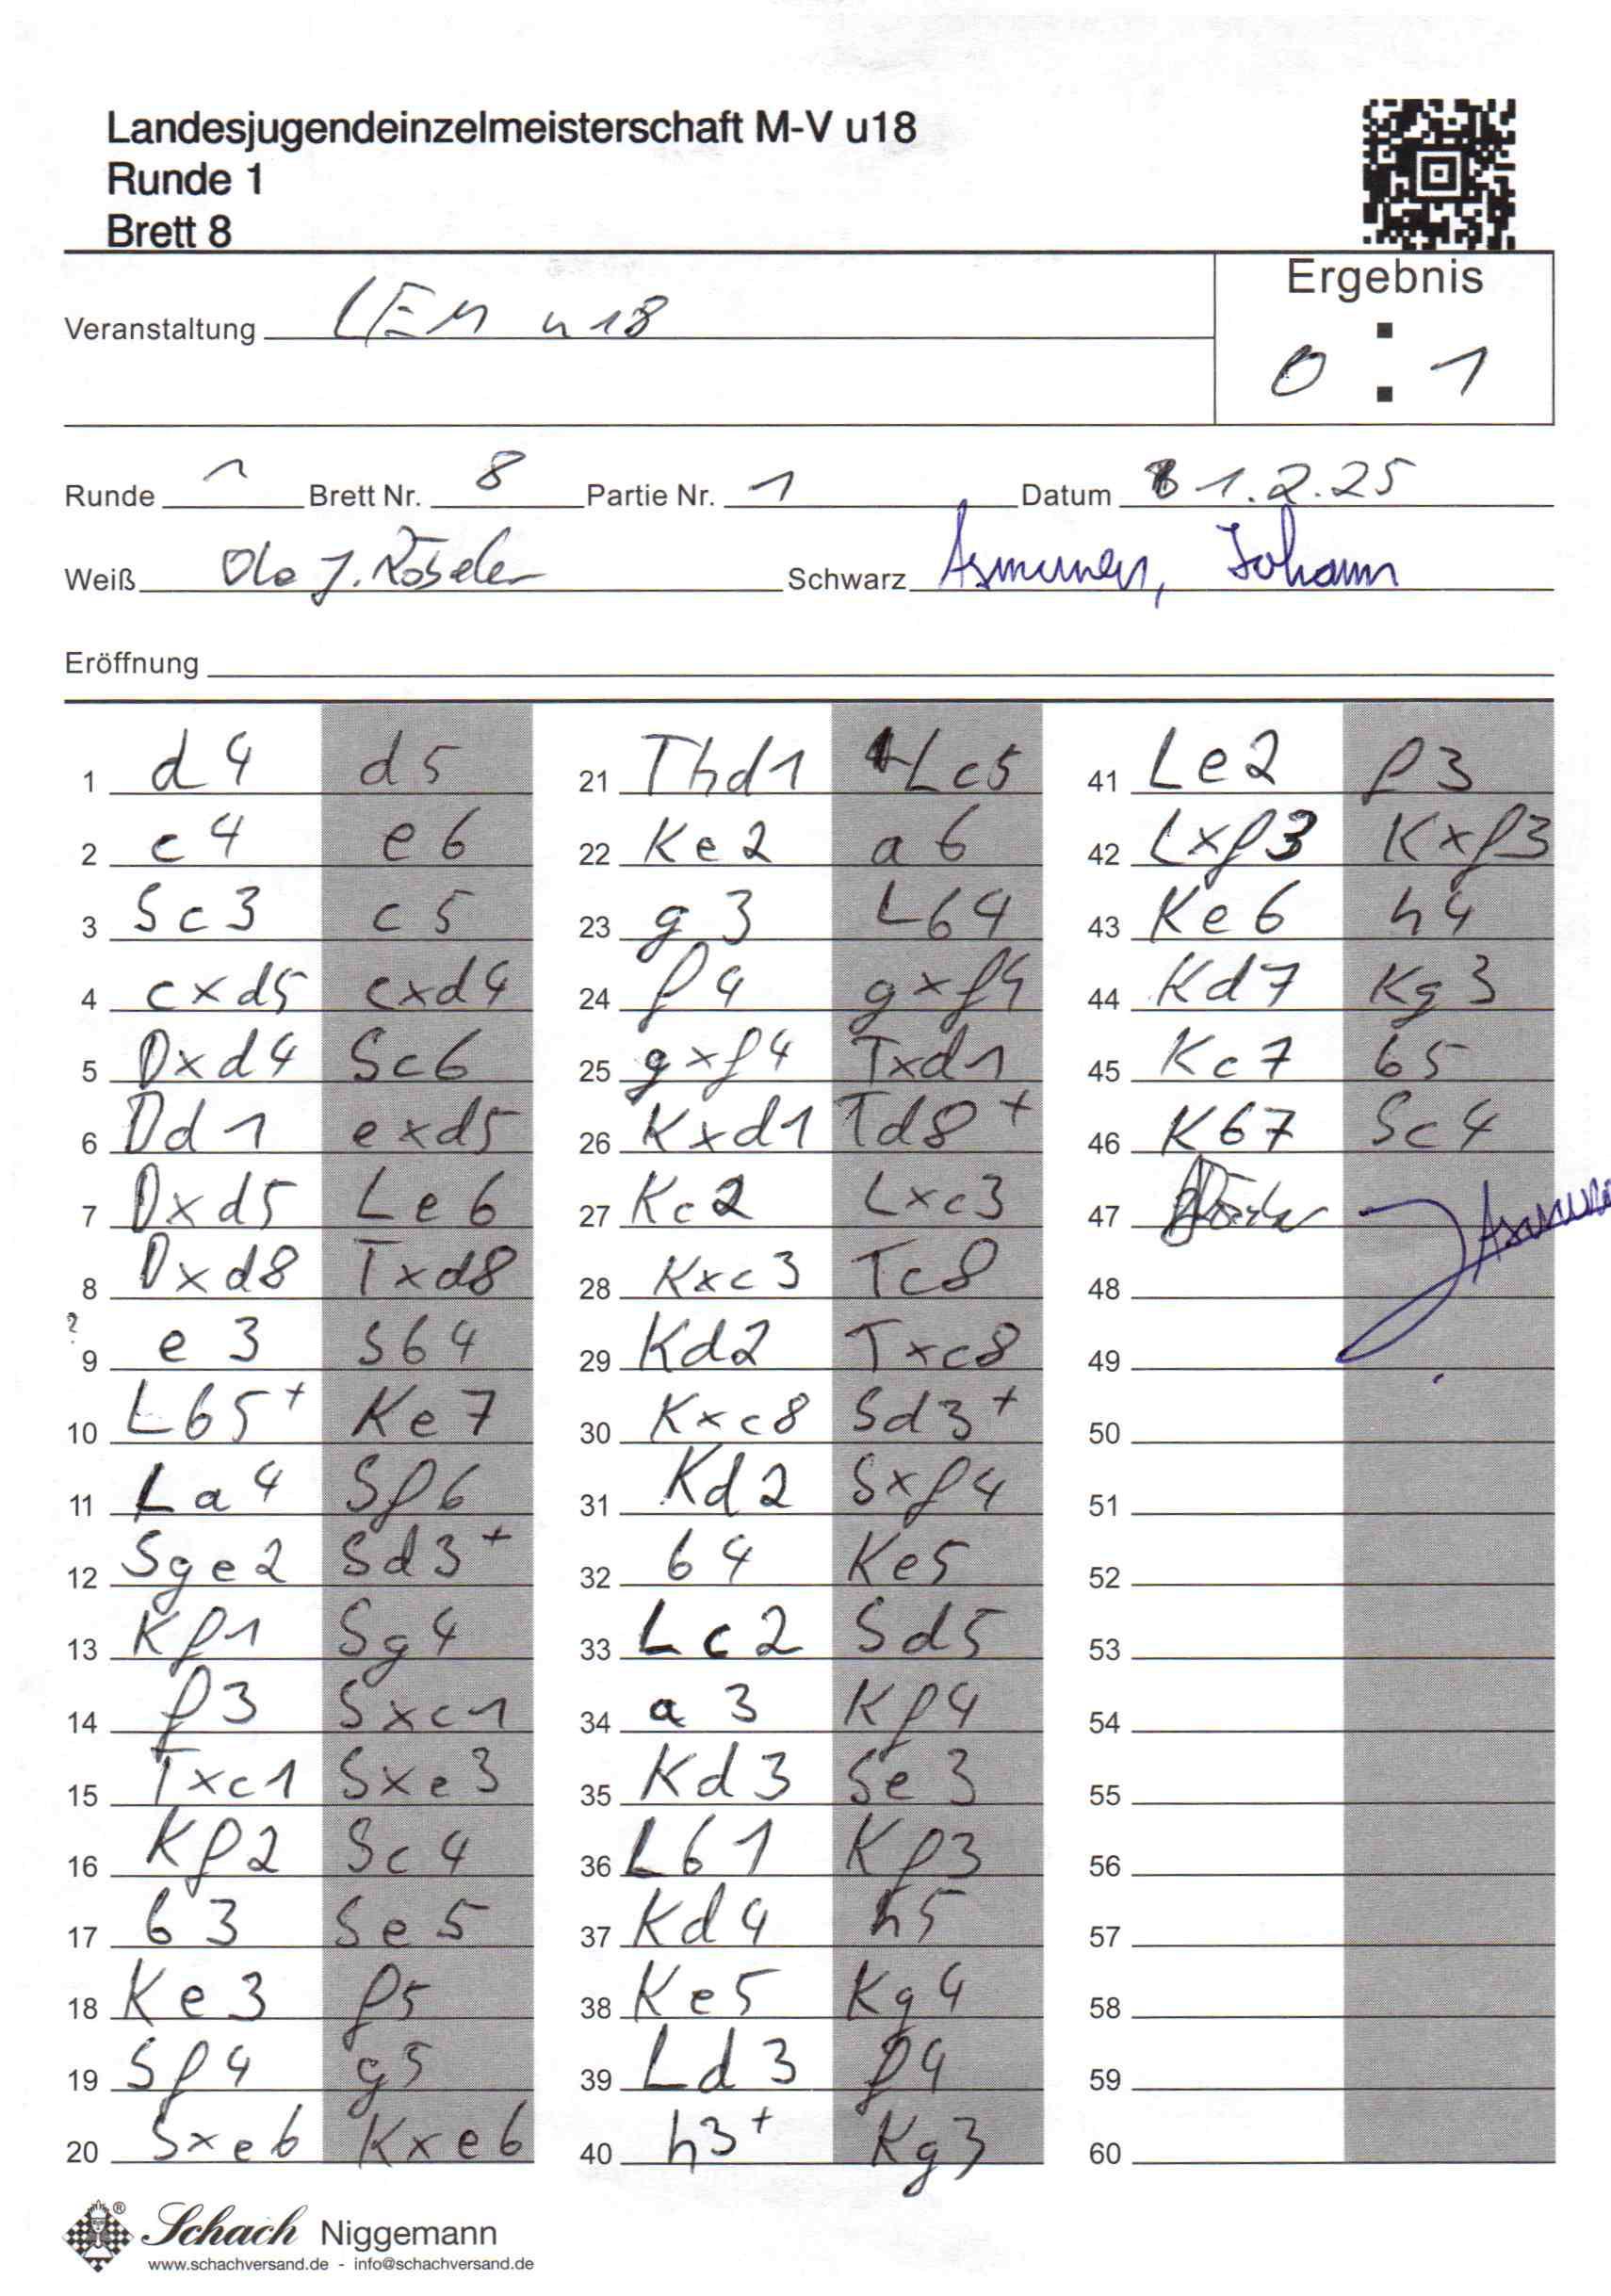 Landesjugendeinzelmeisterschaft M-V u18
Runde 1
Brett 8
Ergebnis
Veranstaltung LEM u18
0 : 1
Runde 1 Brett Nr. 8 Partie Nr. 1 Datum 1.2.25
Weiß Ole J. Röseler Schwarz Asmussen, Johann
Eröffnung
1 d4 d5 21 Thd1 Lc5 41 Le2 f3
2 c4 e6 22 Ke2 a6 42 Lxf3 Kxf3
3 Sc3 c5 23 g3 Lb4 43 Ke6 h4
4 cxd5 cxd4 24 f4 gxf4 44 Kd7 Kg3
5 Dxd4 Sc6 25 gxf4 Txd1 45 Kc7 b5
6 Dd1 exd5 26 Kxd1 Td8+ 46 Kb7 Sc4
7 Dxd5 Le6 27 Kc2 Lxc3 47
8 Dxd8 Txd8 28 Kxc3 Tc8 48
9 e3 Sb4 29 Kd2 Txc8 49
10 Lb5+ Ke7 30 Kxc8 Sd3+ 50
11 La4 Sf6 31 Kd2 Sxf4 51
12 Sge2 Sd3+ 32 b4 Ke5 52
13 Kf1 Sg4 33 Lc2 Sd5 53
14 f3 Sxc1 34 a3 Kf4 54
15 Txc1 Sxe3 35 Kd3 Se3 55
16 Kf2 Sc4 36 Lb1 Kf3 56
17 b3 Se5 37 Kd4 h5 57
18 Ke3 f5 38 Ke5 Kg4 58
19 Sf4 g5 39 Ld3 f4 59
20 Sxe6 Kxe6 40 h3+ Kg3 60
Schach Niggemann
www.schachversand.de - info@schachversand.de